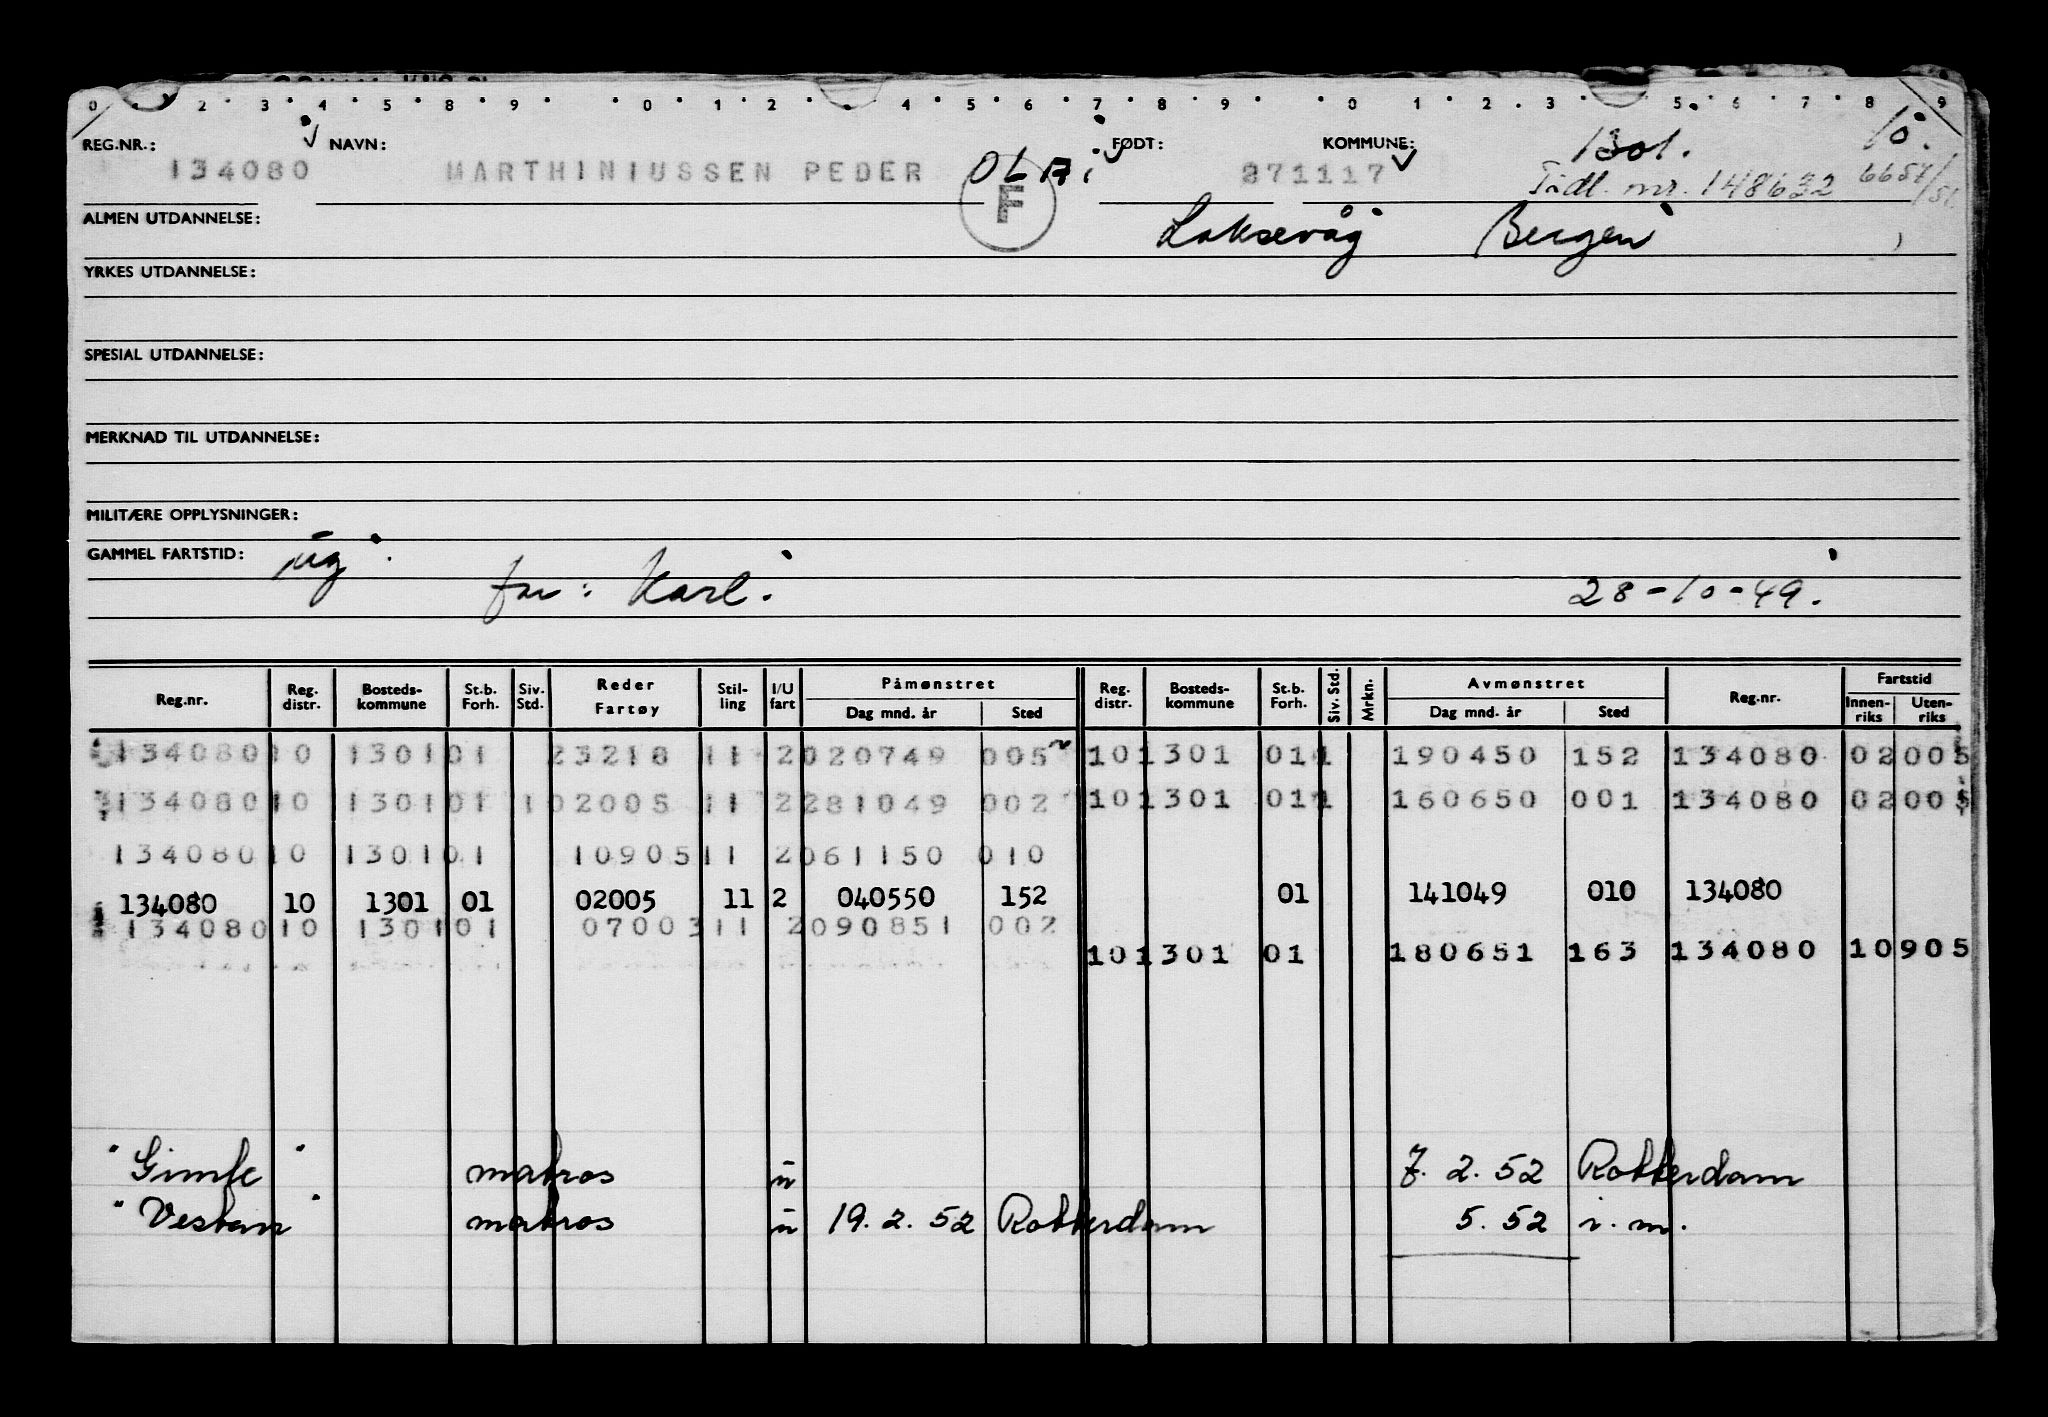 0 2 3 4 5 8 9 0 1 2 4 5 6 7 8 9 0 1 2 3 5 6 7 8 9
REG.NR.: NAVN: FØDT: KOMMUNE: 1301. 10.
134080 MARTHINIUSSEN PEDER OLAi 271117 Tidl. nr. 148632 6657/51.
F
ALMEN UTDANNELSE: Laksevåg Bergen
YRKES UTDANNELSE:
SPESIAL UTDANNELSE:
MERKNAD TIL UTDANNELSE:
MILITÆRE OPPLYSNINGER:
GAMMEL FARTSTID: ug
far: Karl. 28-10-49.
Reg.nr. Reg. distr. Bosteds-kommune St.b. Forh. Siv. Std. Reder Fartøy Stil-ling I/U fart Påmønstret Dag mnd. år Sted Reg. distr. Bosteds-kommune St.b. Forh. Siv. Std. Mrkn. Avmønstret Dag mnd. år Sted Reg.nr. Fartstid Innen-riks Uten-riks
134080 10 1301 01 23218 11 2 020749 005 10 1301 01 1 190450 152 134080 02005
134080 10 1301 01 1 02005 11 2 281049 002 10 1301 01 1 160650 001 134080 02005
134080 10 1301 01 10905 11 2 061150 010
134080 10 1301 01 02005 11 2 040550 152 01 141049 010 134080
134080 10 1301 01 07003 11 2 090851 002
10 1301 01 180651 163 134080 10905
"Gimle" matros u 7. 2. 52 Rotterdam
"Vestan" matros u 19. 2. 52 Rotterdam 5. 52 i. m.